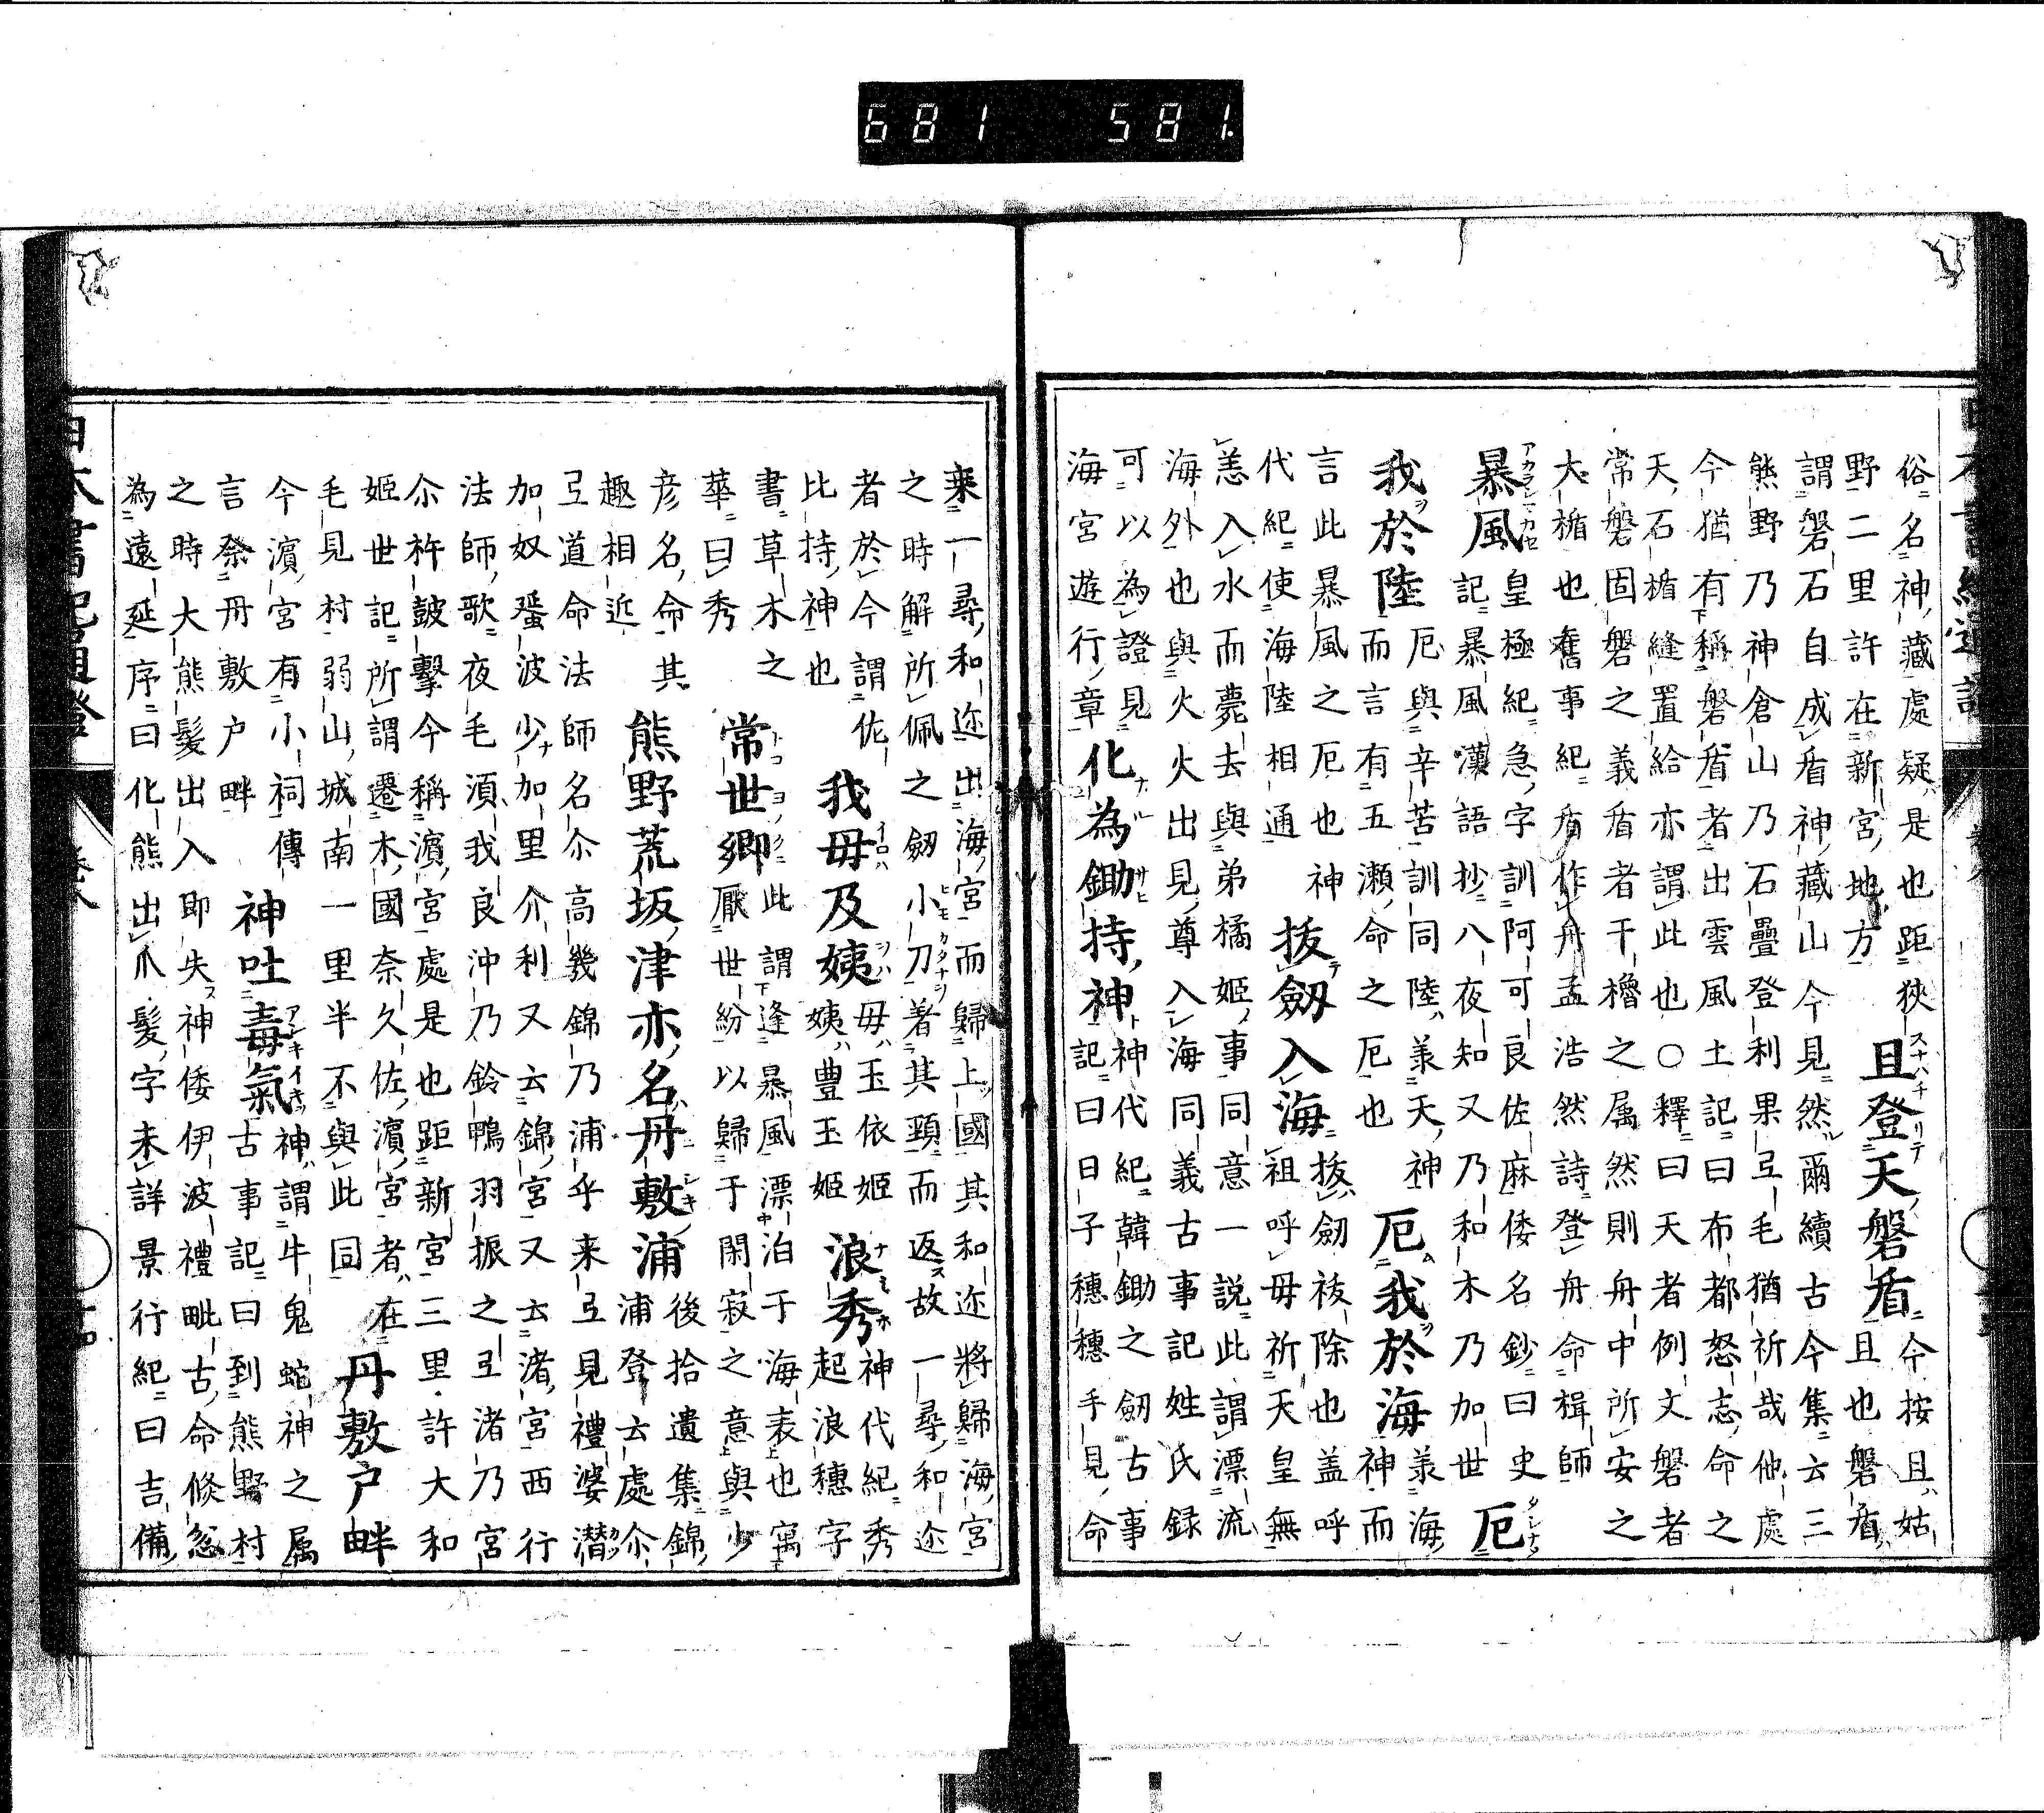 俗名神藏處疑是也距狹
野二里許在新宮地方
且登天磐盾
今按且姑
且也磐盾
謂磐石自成盾神藏山今見然爾續古今集云三
熊野乃神倉山乃石疊登利果弖毛猶祈哉他處
今猶有稱磐盾者出雲風土記曰布都怒志命之
天石楯縫置給亦謂此也〇釋曰天者例文磐者
常磐固磐之義盾者干櫓之属然則舟中所安之
大楯也舊事紀盾作舟孟浩然詩登舟命楫師
暴風
皇極紀急字訓阿可良佐麻倭名鈔曰史
記暴風漢語抄八夜知又乃和木乃加世
厄
我於陸
厄與辛苦訓同陸羕天神
而言有五瀬命之厄也
厄我於海
羕海
神而
言此暴風之厄也神
代紀使海陸相通
拔劔入海
拔劔祓除也盖呼
祖呼母祈天皇無
恙入水而薨去與弟橘姬事同意一説此謂漂流
海外也與火火出見尊入海同義古事記姓氏録
可以為證見
海宮遊行章
化為鋤持神
神代紀韓鋤之劔古事
記曰日子穗穗手見命
乗一尋和迩出海宮而歸上國其和迩將歸海宮
之時解所佩之劔小刀著其頸而返故一尋和迩
者於今謂佐
比持神也
我母及姨
母玉依姬
姨豊玉姬
浪秀
神代紀秀
起浪穗字
書草木之
華曰秀
常世鄉
此謂逢暴風漂泊于海表也寓
厭世紛以歸于閑寂之意與少
彦名命其
趣相近
熊野荒坂津亦名丹敷浦
後拾遺集錦
浦登云處尒
弖道命法師名尒高幾錦乃浦乎来弖見禮婆潜
加奴蜑波少加里介利又云錦宮又云渚宮西行
法師歌夜毛湏我良沖乃鈴鴨羽振之弖渚乃宮
尒杵皷擊今稱濱宮處是也距新宮三里許大和
姬世記所謂遷木國奈久佐濱宮者在
毛見村弱山城南一里半不與此同
丹敷戸畔
今濱宮有小祠傳
言祭丹敷戸畔
神吐毒氣
神謂牛鬼蛇神之属
古事記曰到熊野村
之時大熊髮出入即失神倭伊波禮毗古命倐忽
為遠延序曰化熊出爪髮字未詳景行紀曰吉備
681 581